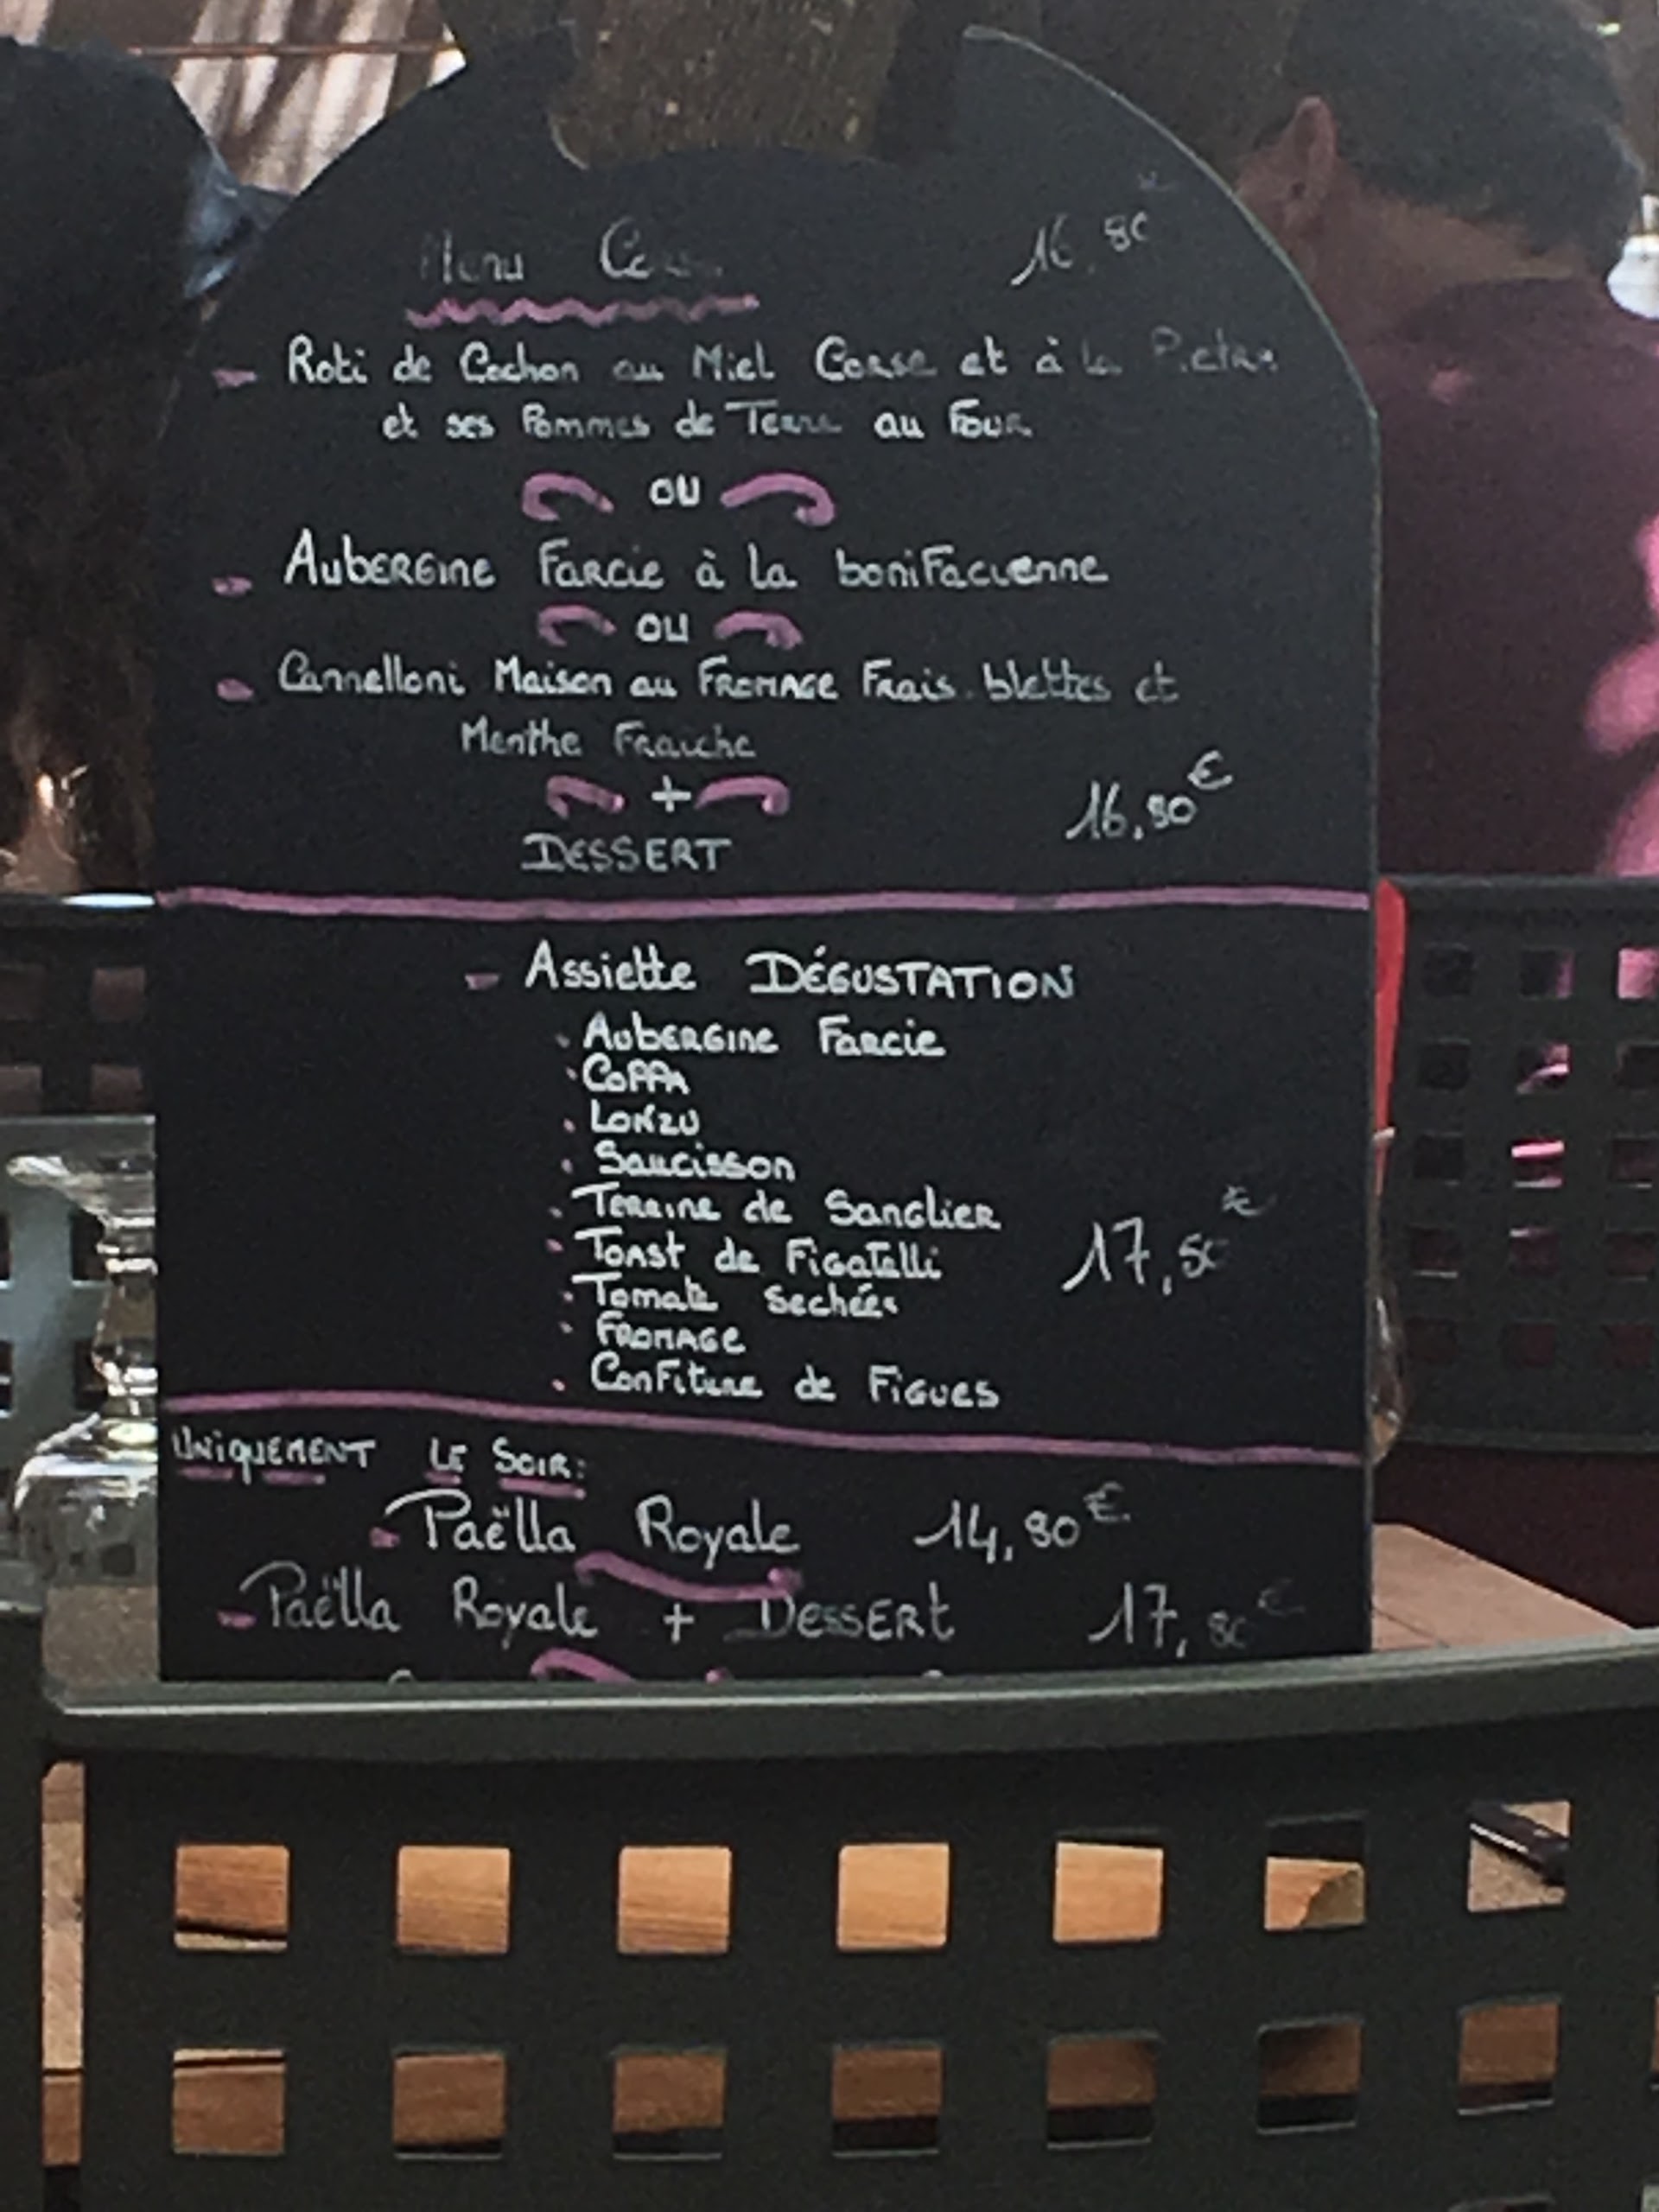 Menu Corse 16,80€
- Roti de Cochon au Miel Corse et à la Pietra
et ses Pommes de Terre au Four
ou
- Aubergine Farcie à la bonifacienne
ou
- Cannelloni Maison au Fromage Frais. blettes et
Menthe Fraiche
+
DESSERT 16,80€
- Assiette DÉGUSTATION
. Aubergine Farcie
. Coppa
. Lonzu
. Saucisson
. Terrine de Sanglier
. Toast de Figatelli 17,50€
. Tomate Sechées
. Fromage
. Confiture de Figues
UNIQUEMENT LE SOIR:
- Paëlla Royale 14,80€
- Paëlla Royale + Dessert 17,80€